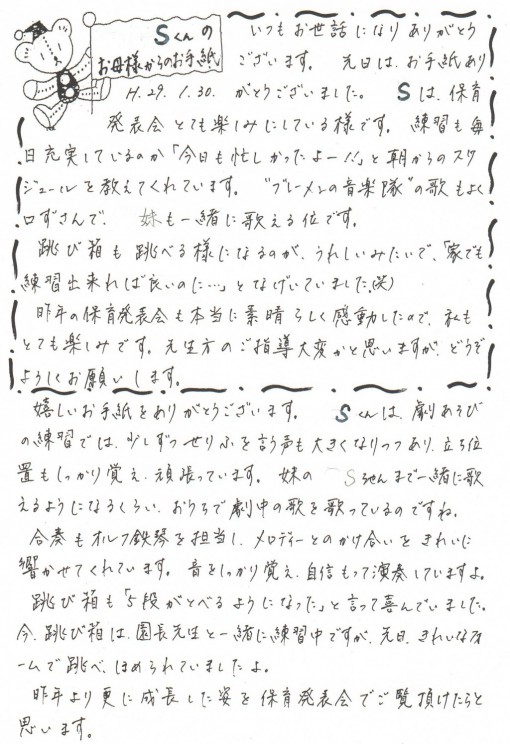 Sくんの
お母様からのお手紙
いつもお世話になりありがとう
ございます。 先日は、お手紙あり
H.29.1.30. がとうございました。 Sは、保育
発表会とても楽しみにしている様です。 練習も毎
日充実しているのか「今日も忙しかったよー!!」と朝からのスケ
ジュールを教えてくれています。 “ブレーメンの音楽隊”の歌もよく
口ずさんで、 妹も一緒に歌える位です。
跳び箱も跳べる様になるのが、うれしいみたいで、「家でも
練習出来れば良いのに…」となげいていました。(笑)
昨年の保育発表会も本当に素晴らしく感動したので、私も
とても楽しみです。先生方のご指導大変かと思いますが、どうぞ
よろしくお願いします。
嬉しいお手紙をありがとうございます。 Sくんは、劇あそび
の練習では、少しずつせりふを言う声も大きくなりつつあり、立ち位
置もしっかり覚え、頑張っています。 妹の Sちゃんまで一緒に歌
えるようになるくらい、おうちで劇中の歌を歌っているのですね。
合奏もオルフ鉄琴を担当し、メロディーとのかけ合いをきれいに
響かせてくれています。 音をしっかり覚え、自信もって演奏していますよ。
跳び箱も「5段がとべるようになった」と言って喜んでいました。
今、跳び箱は、園長先生と一緒に練習中ですが、先日、きれいなフォ
ームで跳べ、ほめられていましたよ。
昨年より更に成長した姿を保育発表会でご覧頂けたらと
思います。